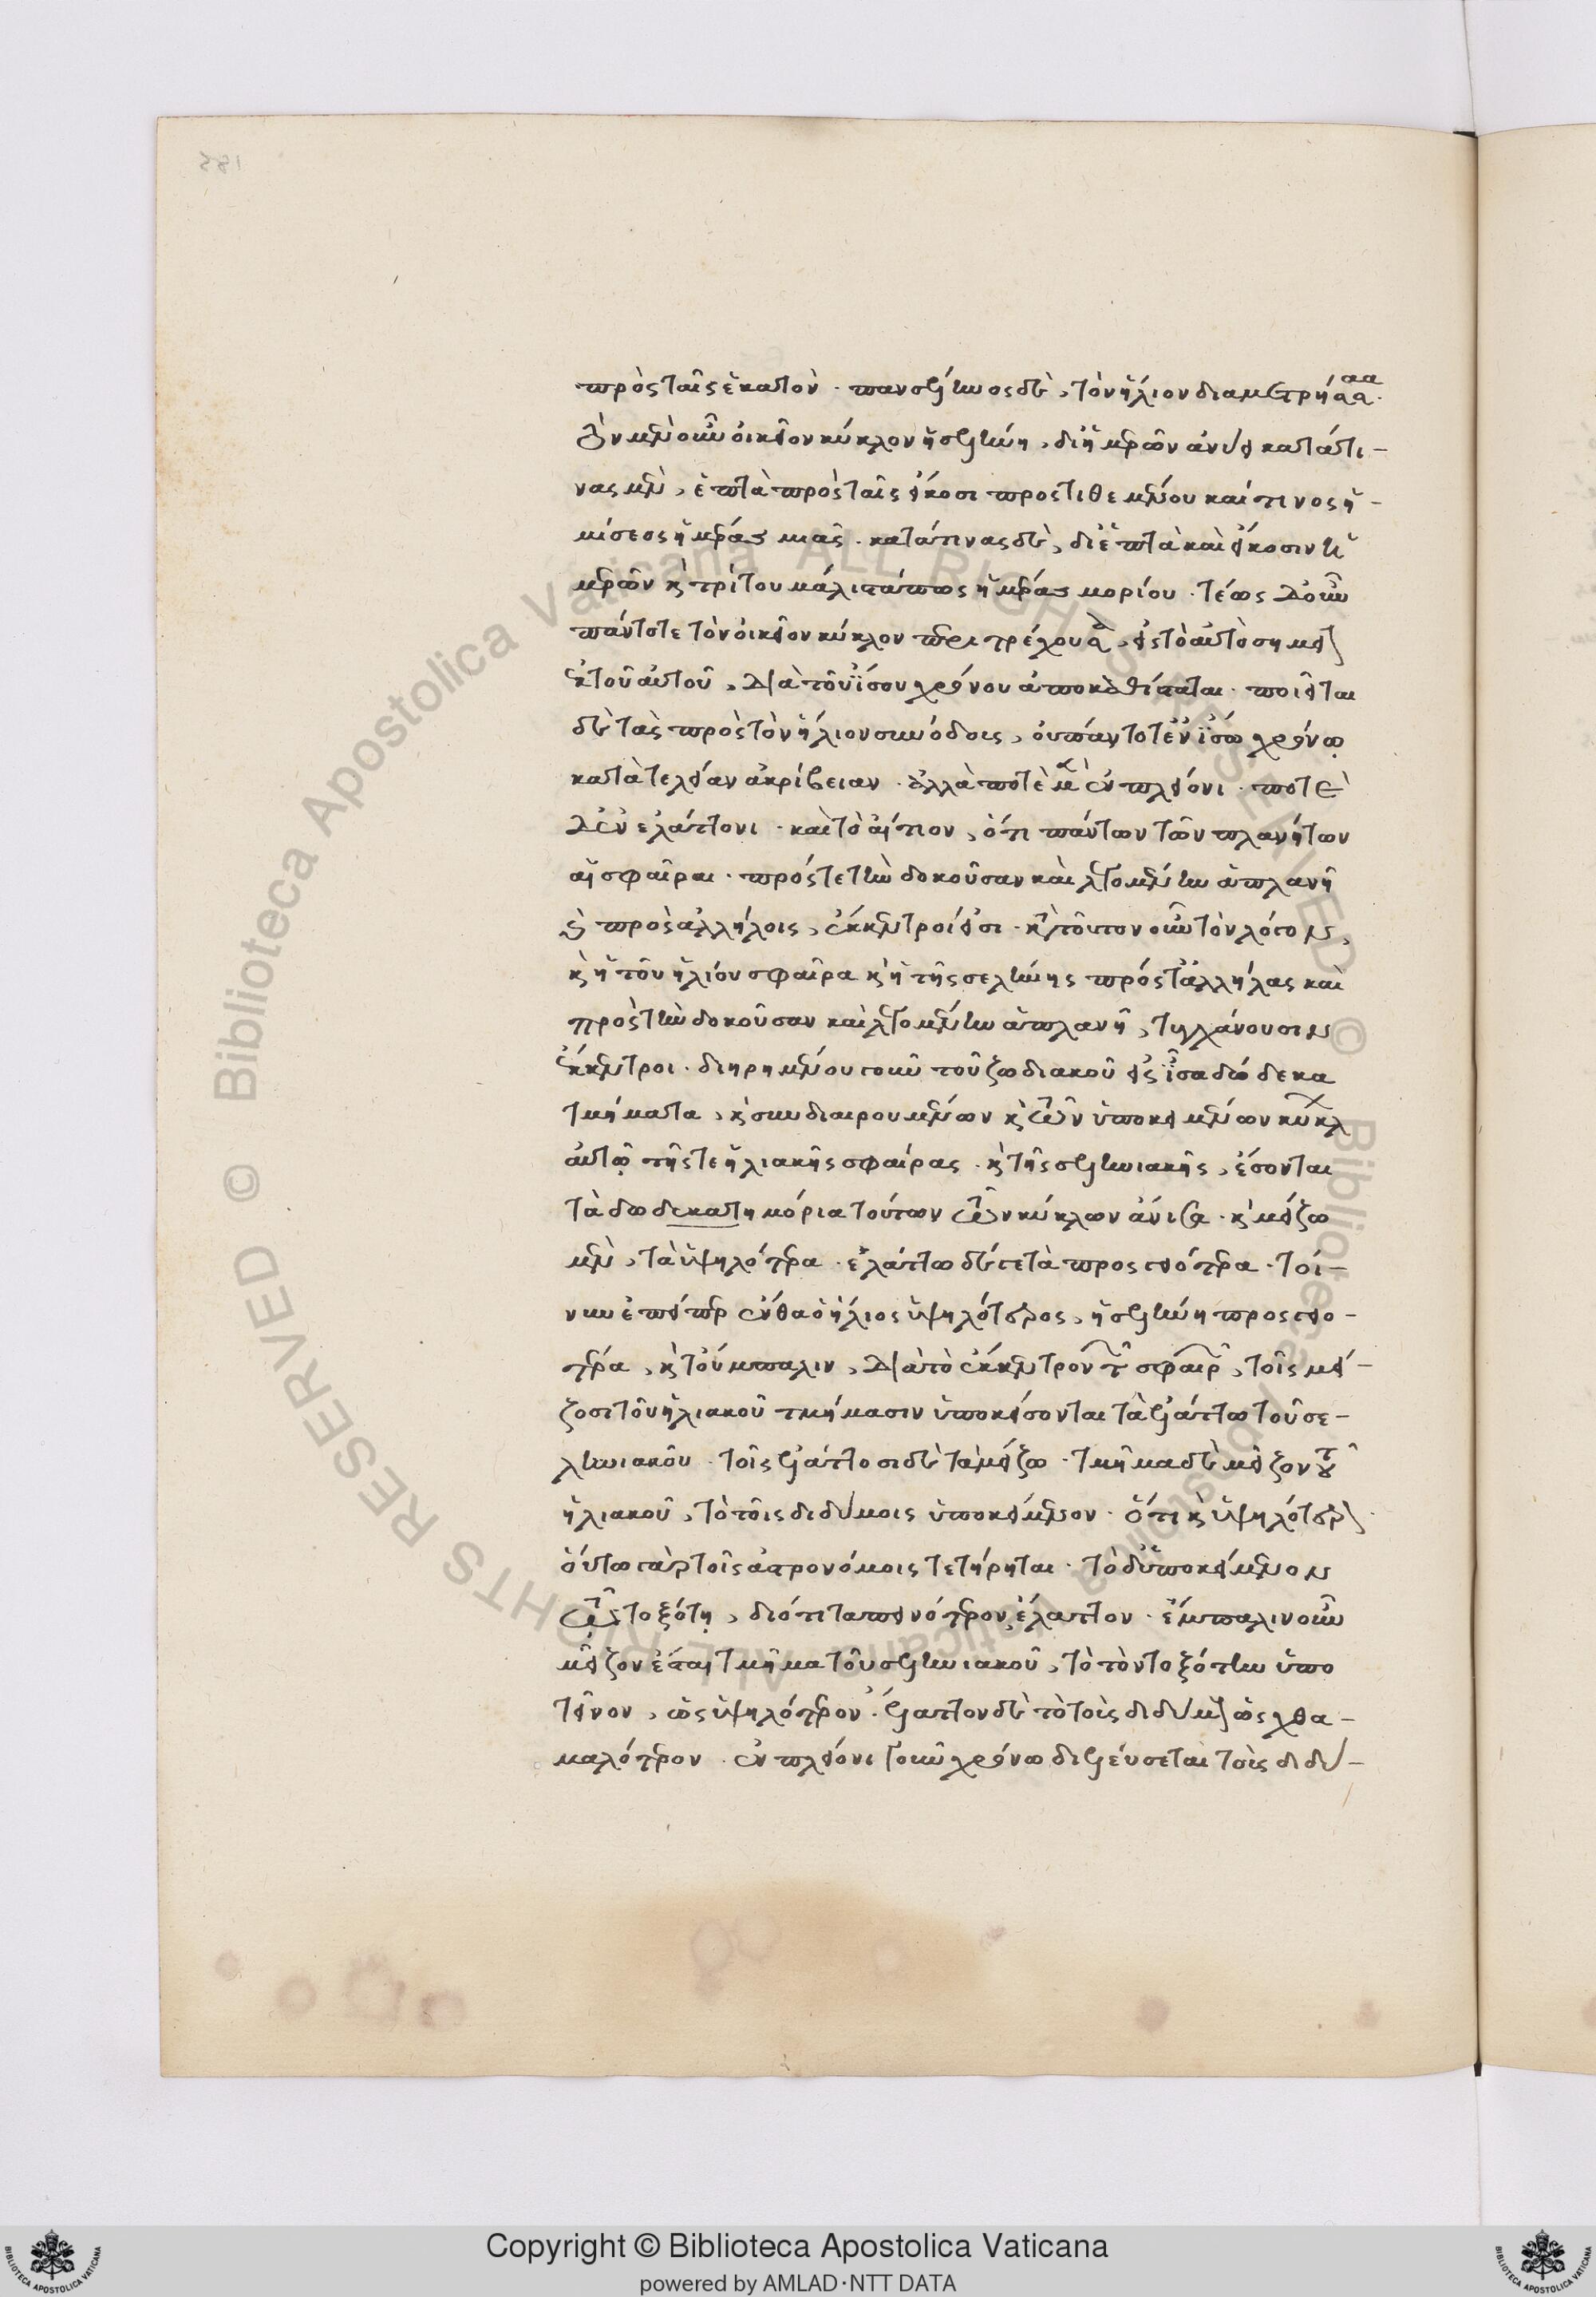 πρὸς ταῖς ἑκατὸν · πανσέληνος δὲ, τὸν ἥλιον διαμετρήσασα.
τὸν μὲν οὖν οἰκεῖον κύκλον ἡ σελήνη, δι' ἡμερῶν ἄνεισι κατά τι-
νας μὲν, ἑπτὰ πρὸς ταῖς εἴκοσι προστιθεμένου καί τινος ἡ-
μίσεος ἡμέρας μιᾶς · κατά τινας δὲ, δι' ἑπτὰ καὶ εἴκοσιν ἡ
μερῶν καὶ τρίτου μάλιστά πως ἡμέρας μορίου · τέως δ' οὖν
πάντοτε τὸν οἰκεῖον κύκλον περιτρέχουσα, εἰς τὸ αὐτὸ σημεῖον
ἐκ τοῦ αὐτοῦ, διὰ τοῦ ἴσου χρόνου ἀποκαθίσταται · ποιεῖται
δὲ τὰς πρὸς τὸν ἥλιον συνόδους, οὐ πάντοτε ἐν ἴσῳ χρόνῳ
κατὰ τελείαν ἀκρίβειαν · ἀλλὰ ποτὲ μὲν ἐν πλείονι · ποτὲ
δ' ἐν ἐλάττονι · καὶ τὸ αἴτιον, ὅτι πάντων τῶν πλανήτων
αἱ σφαῖραι · πρός τε τὴν δοκοῦσαν καὶ λεγομένην ἀπλανῆ
καὶ πρὸς ἀλλήλοις, ἔκκεντροί εἰσι · κατὰ τοῦτον οὖν τὸν λόγον,
καὶ ἡ τοῦ ἡλίου σφαῖρα καὶ ἡ τῆς σελήνης πρός τ' ἀλλήλας καὶ
πρὸς τὴν δοκοῦσαν καὶ λεγομένην ἀπλανῆ, τυγχάνουσιν
ἔκκεντροι · διῃρημένου γοῦν τοῦ ζωδιακοῦ εἰς ἴσα δώδεκα
τμήματα, καὶ συνδιαιρουμένων καὶ τῶν ὑποκειμένων κύκλων
αὐτῷ τῆς τε ἡλιακῆς σφαίρας · καὶ τῆς σεληνιακῆς, ἔσονται
τὰ δωδεκατημόρια τούτων τῶν κύκλων ἄνισα · καὶ μείζω
μὲν, τὰ ὑψηλότερα · ἐλάττω δέ γε τὰ προσγειότερα · τοί-
νυν ἐπείπερ ἔνθα ὁ ἥλιος ὑψηλότερος, ἡ σελήνη προσγειο-
τέρα, καὶ τοὔμπαλιν, διὰ τὸ ἔκκεντρον τῶν σφαιρῶν, τοῖς μεί-
ζοσι τοῦ ἡλιακοῦ τμήμασιν ὑποκείσονται τὰ ἐλάττω τοῦ σε-
ληνιακοῦ · τοῖς ἐλάττοσι δὲ τὰ μείζω · τμῆμα δὲ μεῖζον τοῦ
ἡλιακοῦ, τὸ τοῖς διδύμοις ὑποκείμενον · ὅτι καὶ ὑψηλότερον ·
οὕτω γὰρ τοῖς ἀστρονόμοις τετήρηται · τὸ δ' ὑποκείμενον
τῷ τοξότῃ, διότι ταπεινότερον, ἔλαττον · ἔμπαλιν οὖν
μεῖζον ἔσται τμῆμα τοῦ σεληνιακοῦ, τὸ τὸν τοξότην ὑπο
τεῖνον, ὡς ὑψηλότερον · ἔλαττον δὲ τὸ τοῖς διδύμοις ὡς χθα-
μαλότερον · ἐν πλείονι γοῦν χρόνῳ διελεύσεται τοῖς διδύ-